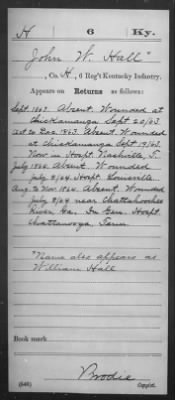 H 6 Ky.
John W. Hall"
, Co. H, 6 Reg't Kentucky Infantry.
Appears on Returns as follows:
Sept. 1863. Absent. Wounded at
Chickamauga Sept 20/63
Oct to Dec. 1863. Absent Wounded
at Chickamauga Sept 19/63.
Now in Hospt. Nashville, T.
July 1864. Absent Wounded
July 5/64. Hospt. Louisville.
Aug. to Nov. 1864. Absent. Wounded
July 5/64 near Chattahoochee
River, Ga. In Gen. Hospt.
Chattanooga, Tenn.
"Name also appears as
William Hall
Book mark:
Brodie
(546) Copyist.